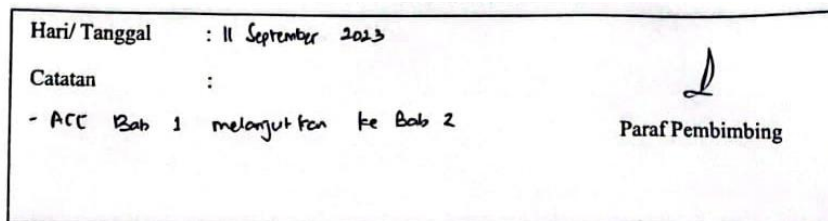 Hari/ Tanggal : 11 September 2023
Catatan :
- ACC Bab 1 melanjutkan ke Bab 2
Paraf Pembimbing